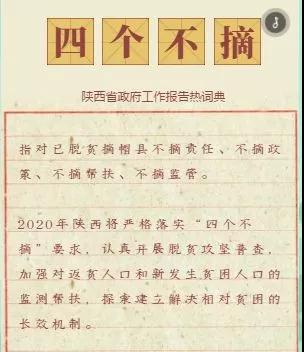 四个不摘
陕西省政府工作报告热词典
指对已脱贫摘帽县不摘责任、不摘政
策、不摘帮扶、不摘监管。
2020年陕西将严格落实“四个不
摘”要求，认真开展脱贫攻坚普查，
加强对返贫人口和新发生贫困人口的
监测帮扶，探索建立解决相对贫困的
长效机制。